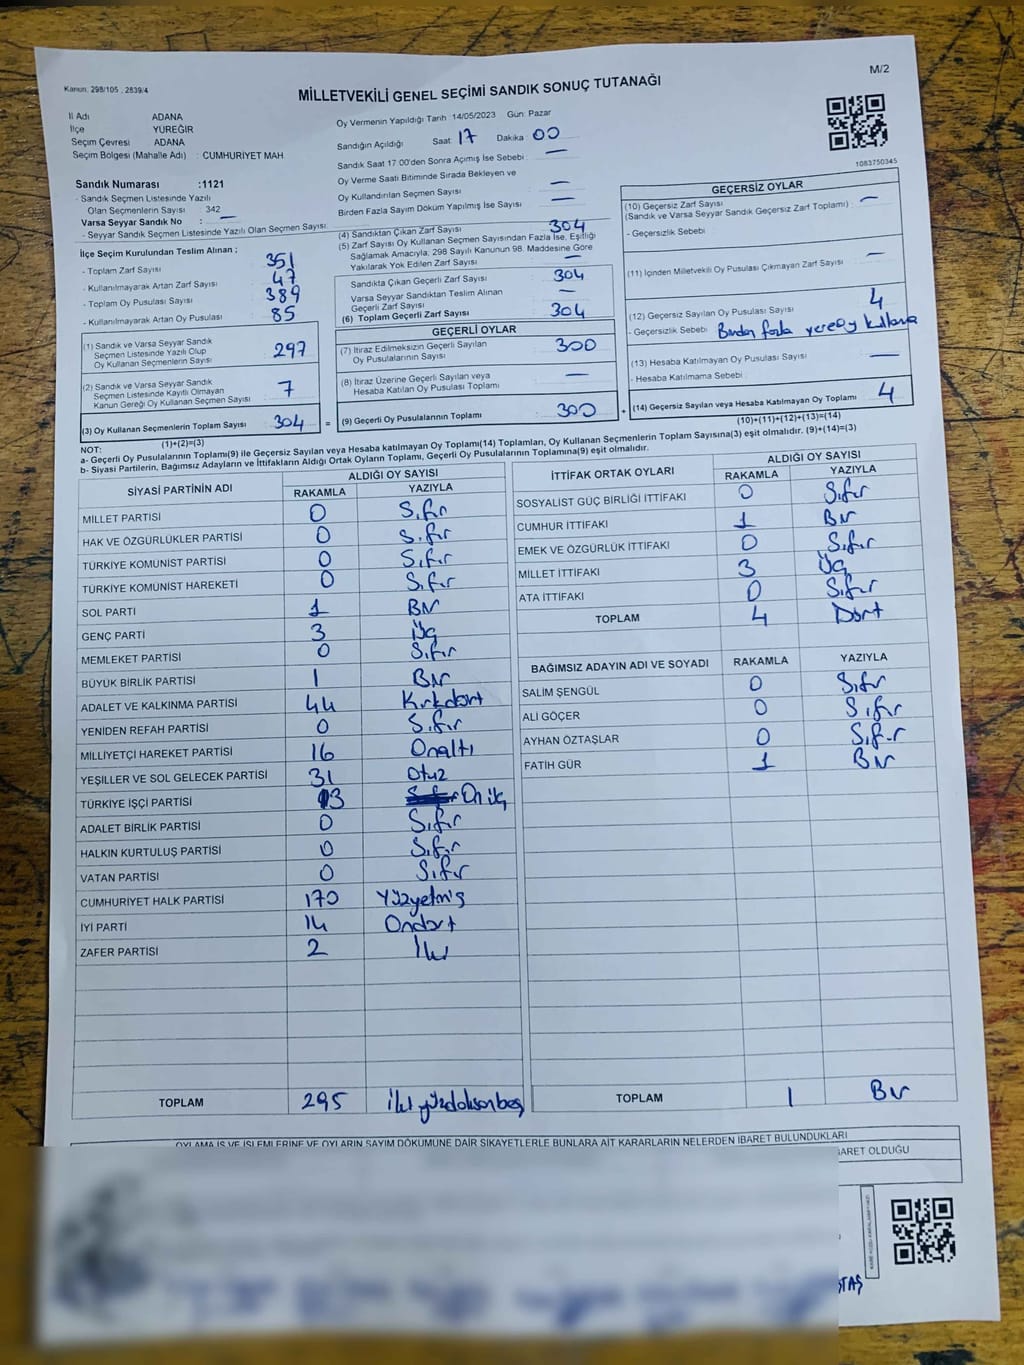 Kanun, 298/105 , 2839/4
MİLLETVEKİLİ GENEL SEÇİMİ SANDIK SONUÇ TUTANAĞI
M/2
İl Adı ADANA
İlçe YÜREĞİR
Seçim Çevresi ADANA
Seçim Bölgesi (Mahalle Adı) : CUMHURİYET MAH
Sandık Numarası :1121
- Sandık Seçmen Listesinde Yazılı
Olan Seçmenlerin Sayısı 342
Varsa Seyyar Sandık No : —
- Seyyar Sandık Seçmen Listesinde Yazılı Olan Seçmen Sayısı:
İlçe Seçim Kurulundan Teslim Alınan ;
- Toplam Zarf Sayısı 351
- Kullanılmayarak Artan Zarf Sayısı 47
- Toplam Oy Pusulası Sayısı 389
- Kullanılmayarak Artan Oy Pusulası 85
(1) Sandık ve Varsa Seyyar Sandık
Seçmen Listesinde Yazılı Olup
Oy Kullanan Seçmenlerin Sayısı 297
(2) Sandık ve Varsa Seyyar Sandık
Seçmen Listesinde Kayıtlı Olmayan
Kanun Gereği Oy Kullanan Seçmen Sayısı 7
(3) Oy Kullanan Seçmenlerin Toplam Sayısı 304
(1)+(2)=(3)
Oy Vermenin Yapıldığı Tarih 14/05/2023 Gün: Pazar
Sandığın Açıldığı Saat 17 Dakika 00
Sandık Saat 17:00'den Sonra Açımış İse Sebebi : —
Oy Verme Saati Bitiminde Sırada Bekleyen ve
Oy Kullandırılan Seçmen Sayısı —
Birden Fazla Sayım Döküm Yapılmış İse Sayısı —
(4) Sandıktan Çıkan Zarf Sayısı 304
(5) Zarf Sayısı Oy Kullanan Seçmen Sayısından Fazla İse, Eşitliği
Sağlamak Amacıyla; 298 Sayılı Kanunun 98. Maddesine Göre
Yakılarak Yok Edilen Zarf Sayısı —
Sandıkta Çıkan Geçerli Zarf Sayısı 304
Varsa Seyyar Sandıktan Teslim Alınan
Geçerli Zarf Sayısı —
(6) Toplam Geçerli Zarf Sayısı 304
GEÇERLİ OYLAR
(7) İtiraz Edilmeksizin Geçerli Sayılan
Oy Pusulalarının Sayısı 300
(8) İtiraz Üzerine Geçerli Sayılan veya
Hesaba Katılan Oy Pusulası Toplamı —
= (9) Geçerli Oy Pusulalarının Toplamı 300 +
1083750345
GEÇERSİZ OYLAR
(10) Geçersiz Zarf Sayısı
(Sandık ve Varsa Seyyar Sandık Geçersiz Zarf Toplamı) : —
- Geçersizlik Sebebi
(11) İçinden Milletvekili Oy Pusulası Çıkmayan Zarf Sayısı —
(12) Geçersiz Sayılan Oy Pusulası Sayısı 4
- Geçersizlik Sebebi Birden fazla yere oy kullanma
(13) Hesaba Katılmayan Oy Pusulası Sayısı —
- Hesaba Katılmama Sebebi
(14) Geçersiz Sayılan veya Hesaba Katılmayan Oy Toplamı 4
(10)+(11)+(12)+(13)=(14)
NOT:
a- Geçerli Oy Pusulalarının Toplamı(9) ile Geçersiz Sayılan veya Hesaba katılmayan Oy Toplamı(14) Toplamları, Oy Kullanan Seçmenlerin Toplam Sayısına(3) eşit olmalıdır. (9)+(14)=(3)
b- Siyasi Partilerin, Bağımsız Adayların ve İttifakların Aldığı Ortak Oyların Toplamı, Geçerli Oy Pusulalarının Toplamına(9) eşit olmalıdır.
SİYASİ PARTİNİN ADI ALDIĞI OY SAYISI
RAKAMLA YAZIYLA
MİLLET PARTİSİ 0 Sıfır
HAK VE ÖZGÜRLÜKLER PARTİSİ 0 Sıfır
TÜRKİYE KOMÜNİST PARTİSİ 0 Sıfır
TÜRKİYE KOMÜNİST HAREKETİ 0 Sıfır
SOL PARTİ 1 Bir
GENÇ PARTİ 3 Üç
MEMLEKET PARTİSİ 0 Sıfır
BÜYÜK BİRLİK PARTİSİ 1 Bir
ADALET VE KALKINMA PARTİSİ 44 Kırkdört
YENİDEN REFAH PARTİSİ 0 Sıfır
MİLLİYETÇİ HAREKET PARTİSİ 16 Onaltı
YEŞİLLER VE SOL GELECEK PARTİSİ 31 Otuz
TÜRKİYE İŞÇİ PARTİSİ 13 On üç
ADALET BİRLİK PARTİSİ 0 Sıfır
HALKIN KURTULUŞ PARTİSİ 0 Sıfır
VATAN PARTİSİ 0 Sıfır
CUMHURİYET HALK PARTİSİ 170 Yüzyetmiş
İYİ PARTİ 14 Ondört
ZAFER PARTİSİ 2 İki
TOPLAM 295 İki yüzdoksanbeş
İTTİFAK ORTAK OYLARI ALDIĞI OY SAYISI
RAKAMLA YAZIYLA
SOSYALİST GÜÇ BİRLİĞİ İTTİFAKI 0 Sıfır
CUMHUR İTTİFAKI 1 Bir
EMEK VE ÖZGÜRLÜK İTTİFAKI 0 Sıfır
MİLLET İTTİFAKI 3 Üç
ATA İTTİFAKI 0 Sıfır
TOPLAM 4 Dört
BAĞIMSIZ ADAYIN ADI VE SOYADI RAKAMLA YAZIYLA
SALİM ŞENGÜL 0 Sıfır
ALİ GÖÇER 0 Sıfır
AYHAN ÖZTAŞLAR 0 Sıfır
FATİH GÜR 1 Bir
TOPLAM 1 Bir
OYLAMA İŞ VE İŞLEMLERİNE VE OYLARIN SAYIM DÖKÜMÜNE DAİR ŞİKAYETLERLE BUNLARA AİT KARARLARIN NELERDEN İBARET BULUNDUKLARI
BARET OLDUĞU
TAŞ